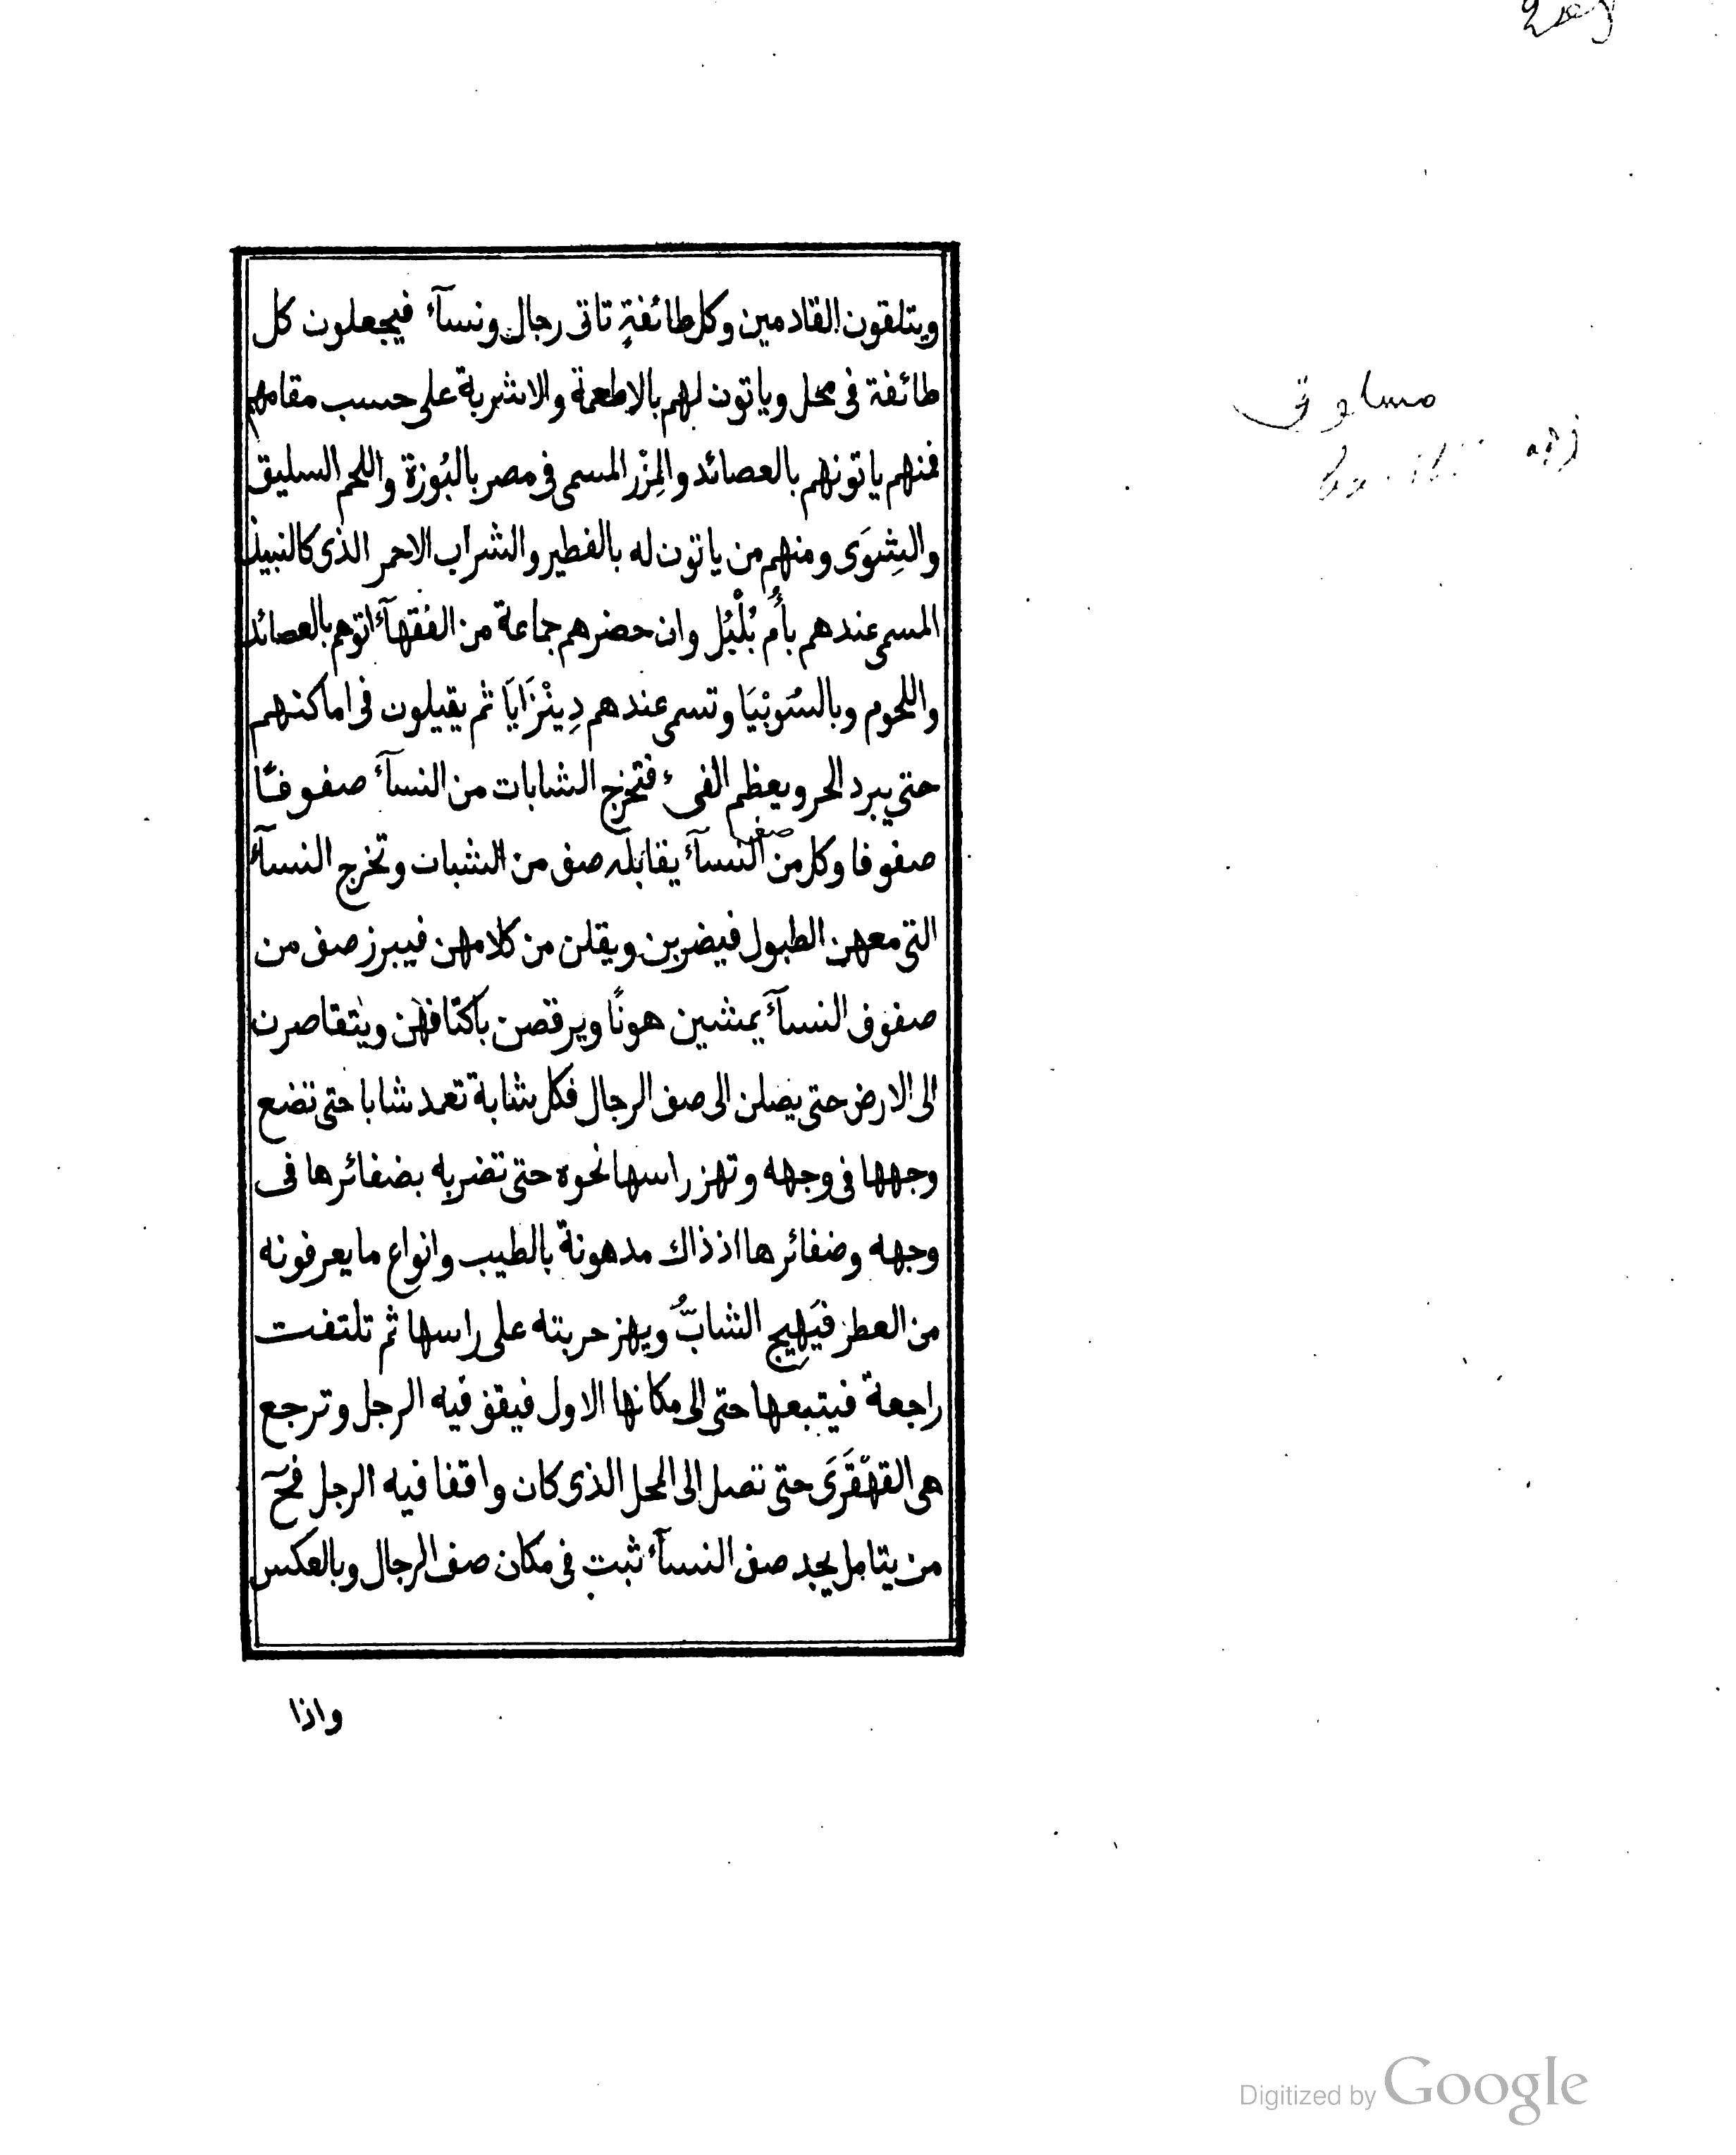 ويتلقون القادمين وكل طائفةٍ تاتى رجال ونسآء فيجعلون كل
طائفة فى محل وياتون لهم بالاطعمة والاشربة على حسب مقامهم
فمنهم ياتونهم بالعصائد والمِزْر المسمى فى مصر بالبُوزة واللحم السليق
والشِوَى ومنهم من ياتون له بالفطير والشراب الاحمر الذى كالنبيذ
المسمى عندهم بأُم بُلْبُل وان حضرهم جماعة من الفُقهآء اتوهم بالعصائد
واللحوم وبالسُوبْيَا وتسمى عندهم دِينْزَايَا ثم يقيلون فى اماكنهم
حتى يبرد الحر ويعظم الفىء فتخرج الشابات من النسآء صفوفًا
صفوفا وكل صف من النسآء يقابله صف من الشبات وتخرج النسآء
التى معهن الطبول فيضربن ويقلن من كلامهن فيبرز صف من
صفوف النسآء يمشين هونًا ويرقصن باكتافهن ويتقاصرن
الى الارض حتى يصلن الى صف الرجال فكل شابة تعمد شابا حتى تضع
وجهها فى وجهه وتهز راسها نحوه حتى تضربه بضفائرها فى
وجهه وضفائرها اذ ذاك مدهونة بالطيب وانواع ما يعرفونه
من العطر فيَهِيج الشابُّ ويهز حربته على راسها ثم تلتفت
راجعة فيتبعها حتى الى مكانها الاول فيقف فيه الرجل وترجع
هى القهْقَرَى حتى تصل الى المحل الذى كان واقفا فيه الرجل فحَ
من يتامل يجد صف النسآء ثبت فى مكان صف الرجال وبالعكس
واذا
Digitized by Google